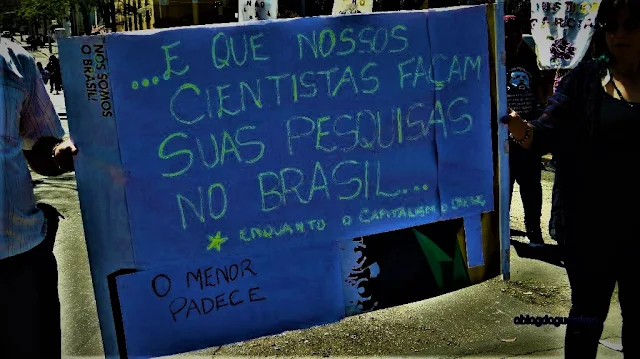 NÃO
NÓS SOMOS
O BRASIL!
...E QUE NOSSOS
CIENTISTAS FAÇAM
SUAS PESQUISAS
NO BRASIL...
ENQUANTO O CAPITALISMO
O MENOR
PADECE